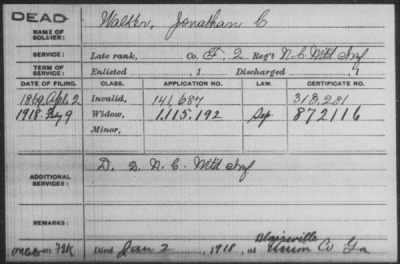 DEAD
NAME OF SOLDIER: Walker, Jonathan C
SERVICE: Late rank, Co. F. 2 Reg't N.C. Mtd Inf
TERM OF SERVICE: Enlisted , 1 Discharged , 1
DATE OF FILING. CLASS. APPLICATION NO. LAW. CERTIFICATE NO.
1869, Apl. 2 Invalid, 141,687 313,281
1918 9 Widow, 1,115,192 872116
Minor,
ADDITIONAL SERVICES: D. 2 N. C. Mtd Inf
REMARKS:
Blairsville
Died Jan 2 , 1918, at Union Co Ga